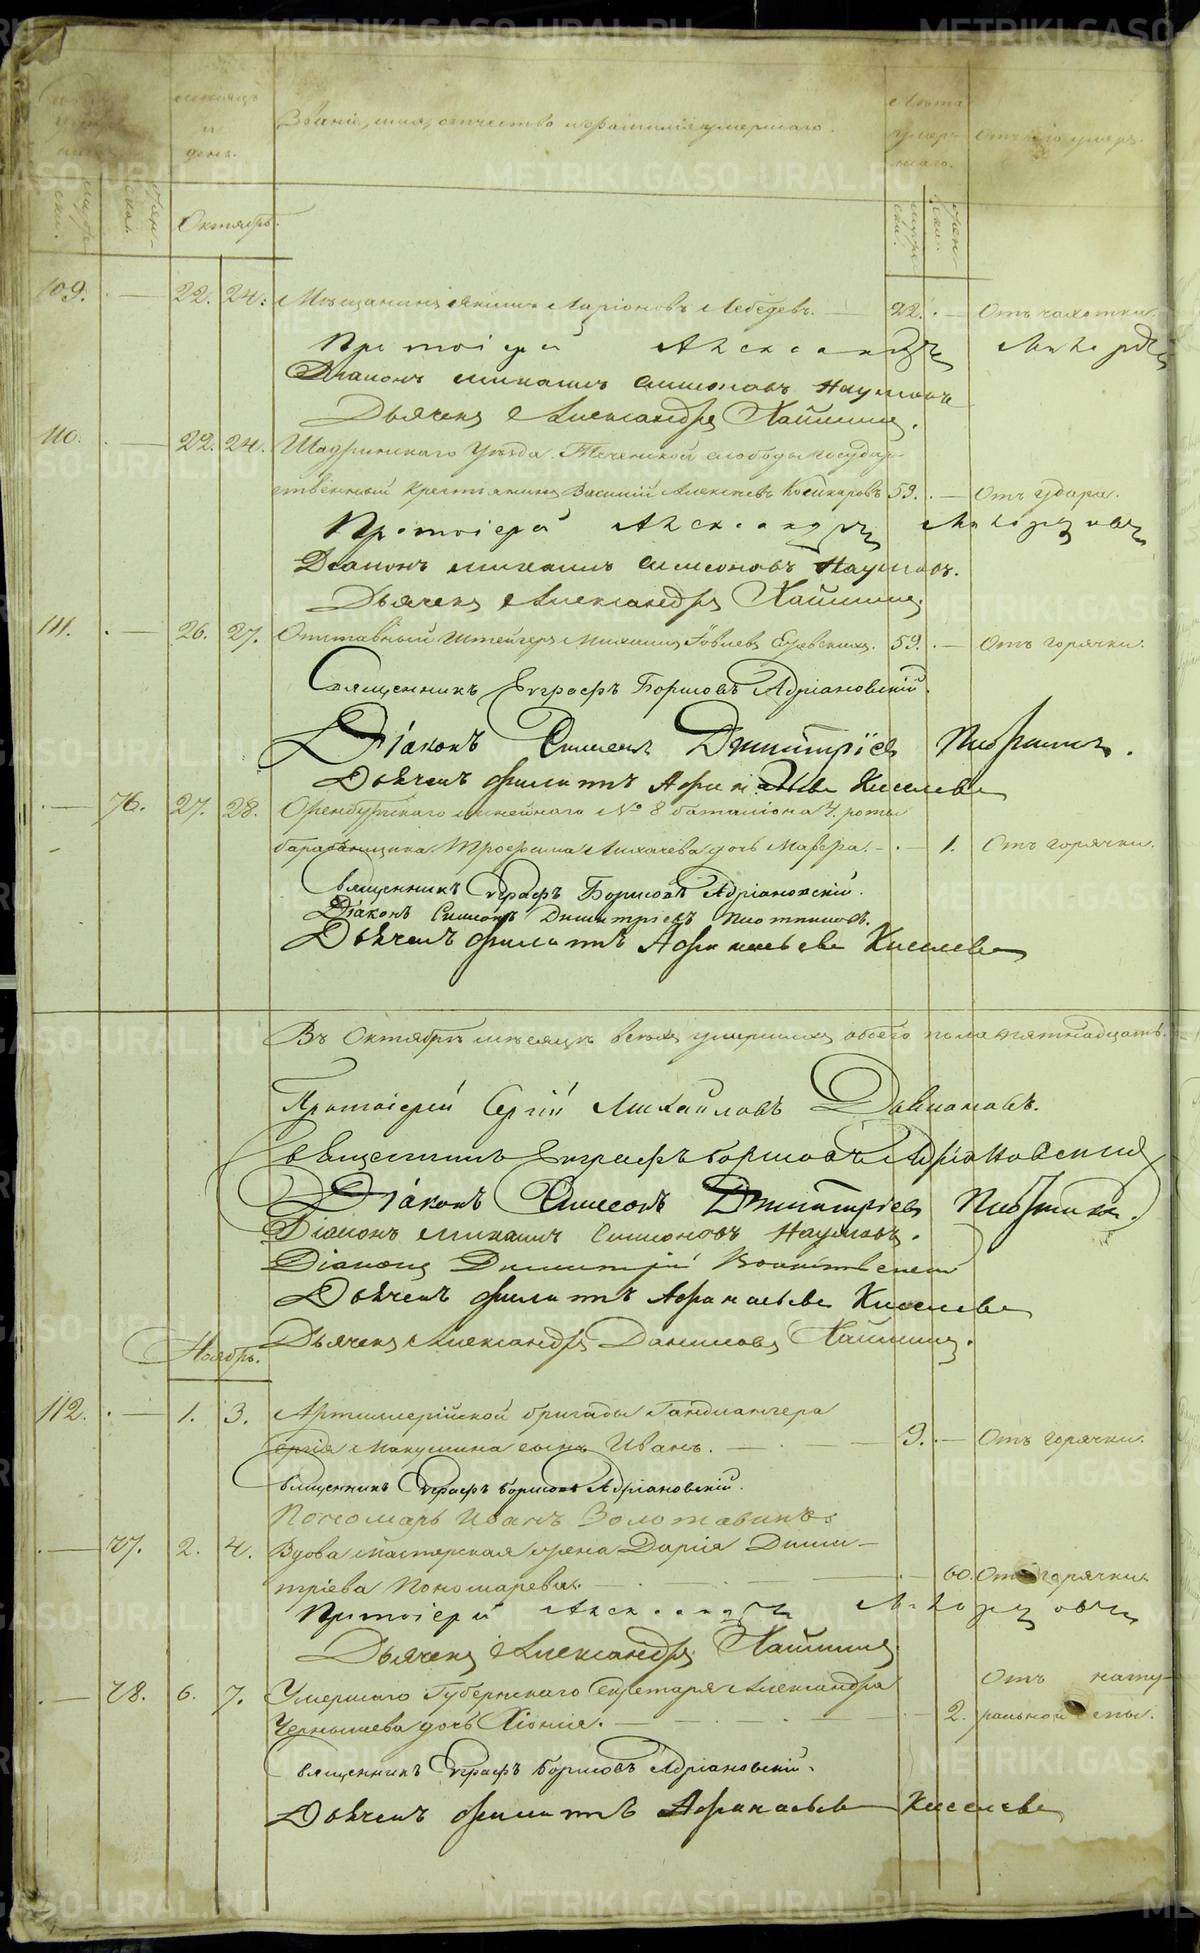 METRIKI.GASO-URAL.RU
мѣсяцъ и день.
Званіе, имя, отчество и фамилія умершаго.
Лѣта умершаго.
Отъ чего умеръ.
Октябрь.
109. — 22. 24. Мѣщанинъ Ларіоновъ Лебедевъ. — 22. — Отъ чахотки.
Протоіерей Александръ
Діаконъ Михаилъ Симеоновъ Наумовъ
Дьячекъ Александръ
110. — 22. 24. Шадринскаго Уѣзда Теченской слободы государ-
ственный крестьянинъ Василій Алексѣевъ 59. — Отъ удара.
Протоіерей Александръ
Діаконъ Михаилъ Симеоновъ Наумовъ.
Дьячекъ Александръ
111. — 26. 27. Отставный Штейгеръ Михаилъ Іовлевъ 59. — Отъ горячки.
Священникъ Евграфъ Борисовъ Адріановскій.
Діаконъ Симеонъ Димитріевъ
Дьячекъ Филатъ Афанасьевъ Киселевъ
— 76. 27. 28. Оренбургскаго линейнаго № 8 баталіона 4. роты
барабанщика Трофима Лихачева дочь Мавра. — 1. Отъ горячки.
Священникъ Евграфъ Борисовъ Адріановскій.
Діаконъ Симеонъ Димитріевъ
Дьячекъ Филатъ Афанасьевъ Киселевъ
Въ Октябрѣ мѣсяцѣ всѣхъ умершихъ обоего пола пятнадцать.
Протоіерей Сергій Михайловъ
Священникъ Евграфъ Борисовъ Адріановскій
Діаконъ Симеонъ Димитріевъ
Діаконъ Михаилъ Симеоновъ Наумовъ.
Діаконъ Димитрій
Дьячекъ Филатъ Афанасьевъ Киселевъ
Дьячекъ Александръ Даниловъ
Ноябрь.
112. — 1. 3. Артиллерійской бригады Гандлангера
Сергія Макушина сынъ Иванъ. — 9. — Отъ горячки.
Священникъ Евграфъ Борисовъ Адріановскій.
Пономарь Иванъ Золотавинъ
— 77. 2. 4. Вдова мастерская жена Дарія Дими-
тріева Пономарева. — 60. Отъ горячки
Протоіерей Александръ
Дьячекъ Александръ
— 78. 6. 7. Умершаго Губернскаго Секретаря Александра
Чернышева дочь Хіонія. — 2. Отъ нату-
ральной оспы.
Священникъ Евграфъ Борисовъ Адріановскій.
Дьячекъ Филатъ Афанасьевъ Киселевъ